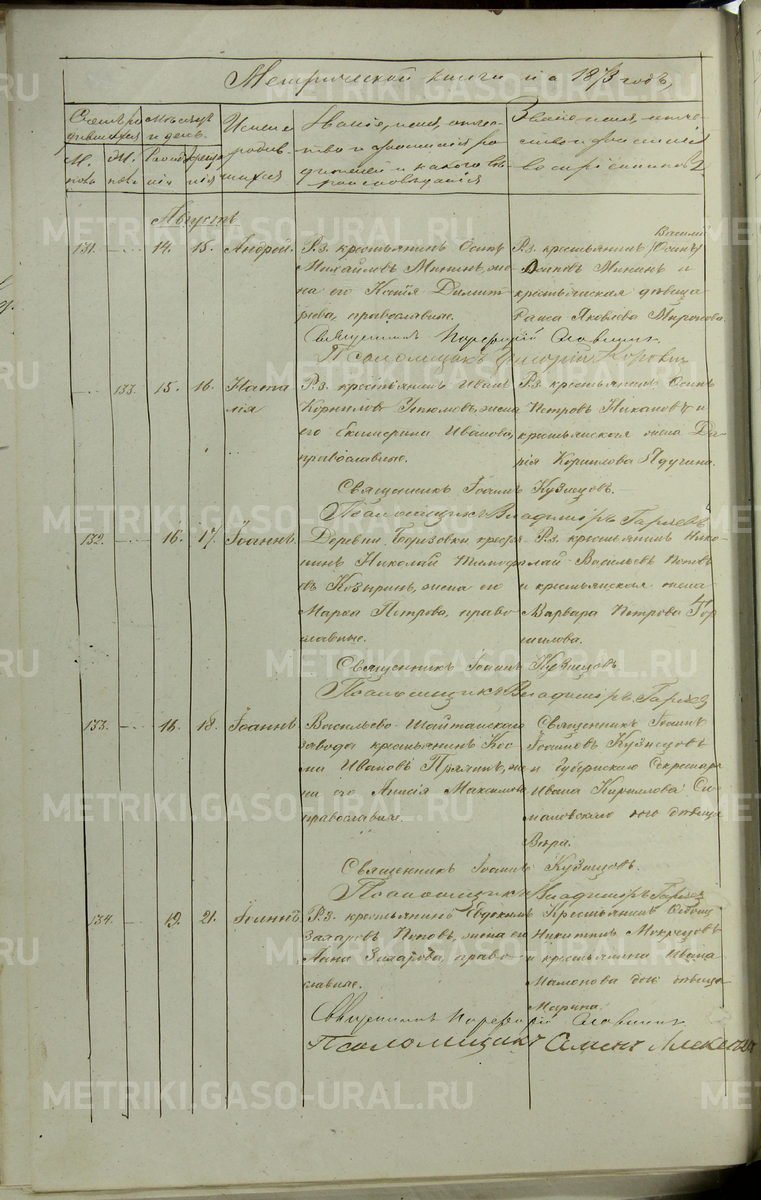 Метрической книги на 1873 годъ,
Счетъ ро
дившихся
М.
пола
Ж.
пола
Мѣсяцъ
и день.
Рожде
нія
Креще
нія
Имена
родив
шихся
Званіе, имя, отче
ство и фамилія ро
дителей и какого вѣ
роисповѣданія
Званіе, имя, отче
ство и фамилія
воспріемниковъ
Августъ
131. 14. 15. Андрей.
Р.з. крестьянинъ Осипъ
Михайловъ Мининъ, же
на его Ксенія Димит
ріева, православные.
Василій
Р.з. крестьянинъ (Осипъ)
Осиповъ Мининъ и
крестьянская дѣвица
Раиса Яковлева Миронова.
Священникъ Порфирій Славнинъ
Псаломщикъ
133. 15. 16. Ната
лія
Р.з. крестьянинъ Иванъ
Корниловъ, жена
его Екатерина Иванова,
православные.
Р.з. крестьянинъ Осипъ
Петровъ и
крестьянская жена Да
рія Корнилова
Священникъ Іоаннъ Кузнецовъ.
Псаломщикъ Владиміръ Гаряевъ
132. 16. 17. Іоаннъ.
Деревни Березовки крестья
нинъ Николай Тимофе
въ Козыринъ, жена его
Марѳа Петрова, право
славные.
Р.з. крестьянинъ Нико
лай Васильевъ Поповъ
и крестьянская жена
Варвара Петрова Гор
шилова.
Священникъ Іоаннъ Кузнецовъ.
Псаломщикъ Владиміръ Гаряев
133. 16. 18. Іоаннъ
Васильево-Шайтанскаго
завода крестьянинъ Кос
ма Ивановъ, же
на его Анисія Максимова
православные.
Священникъ Іоаннъ
Іоанновъ Кузнецовъ
и губернскаго Секретаря
Ивана Кириллова Си
мановскаго дочь дѣвица
Вѣра.
Священникъ Іоаннъ Кузнецовъ.
Псаломщикъ Владиміръ Гаряев
134. 19. 21. Іоаннъ
Р.з. крестьянинъ Евдокимъ
Захаровъ Поповъ, жена его
Анна Захарова, право
славные.
Крестьянинъ
Никитинъ Мокрецовъ
и крестьянина Ивана
Мамонова дочь дѣвица
Марина.
Священникъ Порфирій Славнинъ
Псаломщикъ Алексѣевъ
METRIKI.GASO-URAL.RU